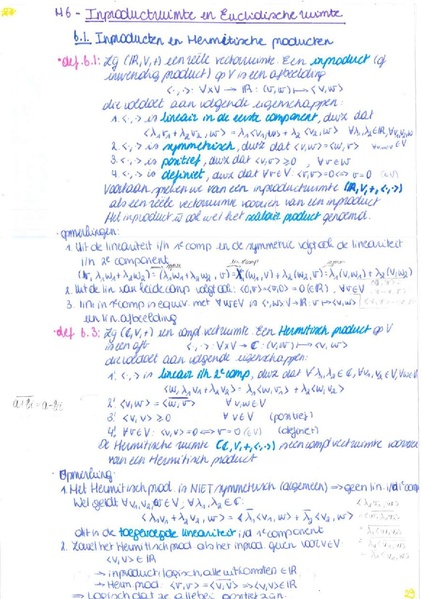 H6 - Inproductruimte en Euclidische ruimte
6.1. Inproducten en Hermitische producten
• def 6.1: Zij (ℝ, V, +) een reële vectorruimte. Een inproduct (of
inwendig product) op V is een afbeelding
<·,·>: V×V → ℝ : (v,w) ↦ <v,w>
die voldoet aan volgende eigenschappen:
1. <·,·> is lineair in de eerste component, dwz dat
<λ₁v₁+λ₂v₂, w> = λ₁<v₁,w> + λ₂<v₂,w> ∀λ₁,λ₂∈ℝ, ∀v₁,v₂,w∈V
2. <·,·> is symmetrisch, dwz dat <v,w> = <w,v> ∀v,w∈V
3. <·,·> is positief, dwz dat <v,v> ≥ 0 , ∀v∈V
4. <·,·> is definiet, dwz dat ∀v∈V: <v,v>=0 ⇔ v=0
Voortaan spreken we van een inproductruimte (ℝ,V,+,<·,·>)
als een reële vectorruimte voorzien van een inproduct
Het inproduct is ook wel het scalair product genoemd.
• opmerkingen:
1. Uit de lineariteit i/h 1e comp en de symmetrie volgt ook de lineariteit
i/h 2e component
2. Uit de lin van beide comp volgt ook: <0,v> = <v,0> = 0 (∈ℝ) , ∀v∈V
3. lin in 1e comp is equiv. met ∀w∈V is <·,w>: V→ℝ: v↦<v,w>
een lin. afbeelding
• def 6.3: Zij (ℂ,V,+) een compl vectruimte. Een Hermitisch product op V
is een afb <·,·>: V×V → ℂ : (v,w) ↦ <v,w>
die voldoet aan volgende eigenschappen:
1' <·,·> is lineair i/h 2e comp, dwz dat ∀λ₁,λ₂∈ℂ, ∀v₁,v₂,w∈V
<w, λ₁v₁+λ₂v₂> = λ₁<w,v₁> + λ₂<w,v₂>
a+bi = a-bi
2' <v,w> = <w,v> ∀v,w∈V
3' <v,v> ≥ 0 ∀v∈V (positief)
4' ∀v∈V: <v,v>=0 ⇔ v=0 (definiet)
De Hermitische ruimte (ℂ,V,+,<·,·>) is een compl vectruimte voorzien
van een Hermitisch product
Opmerking:
1. Het Hermitisch prod. is NIET symmetrisch (algemeen) ⇒ geen lin. i/d 1e comp
Wel geldt ∀v₁,v₂,w∈V, ∀λ₁,λ₂∈ℂ:
<λ₁v₁+λ₂v₂, w> = λ₁<v₁,w> + λ₂<v₂,w>
dit is de toegevoegde lineariteit i/d 1e component
2. Zowel het Hermitisch prod als het inprod geven voor v∈V
<v,v>∈ℝ
→ inproduct: logisch, alle uitkomsten ∈ℝ
→ Herm prod: <v,v> = <v,v> ⇒ <v,v>∈ℝ
⇒ Logisch dat ze allebei positief zijn.
29